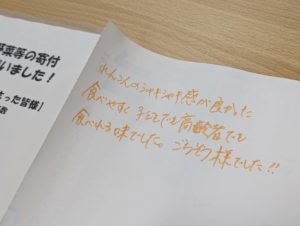 野菜等の寄付
いました！
さった皆様」
れんこんのシャキシャキ感が良かった
食べやすく 子どもでも高齢者でも
食べれる味でした。ごちそう様でした!!